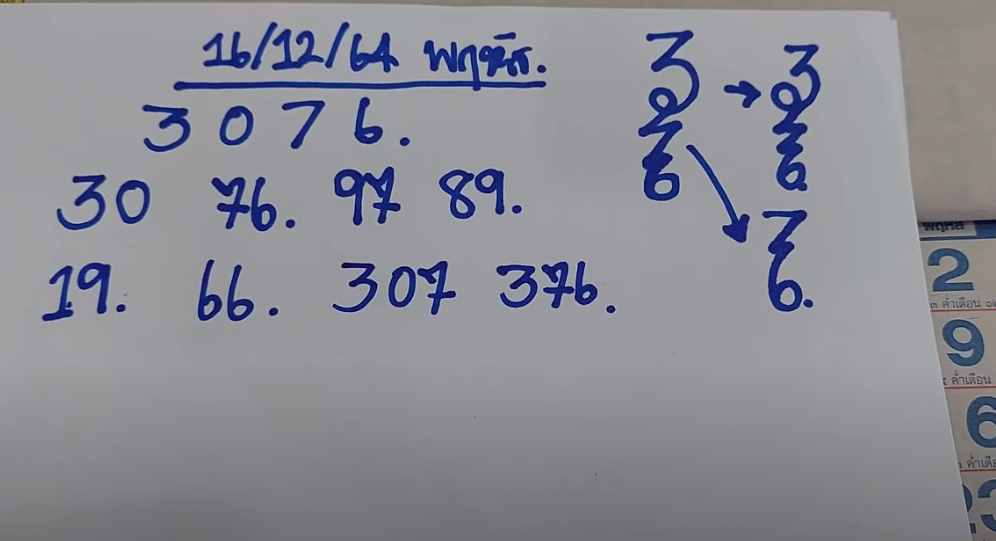 16/12/64 พฤหัส.
3 0 7 6.
30 76. 97 89.
19. 66. 307 376.
3 → 3
0 0
7 7
6 6
7
6.
พฤหัส
2
9
ค่ำเดือน
6
23